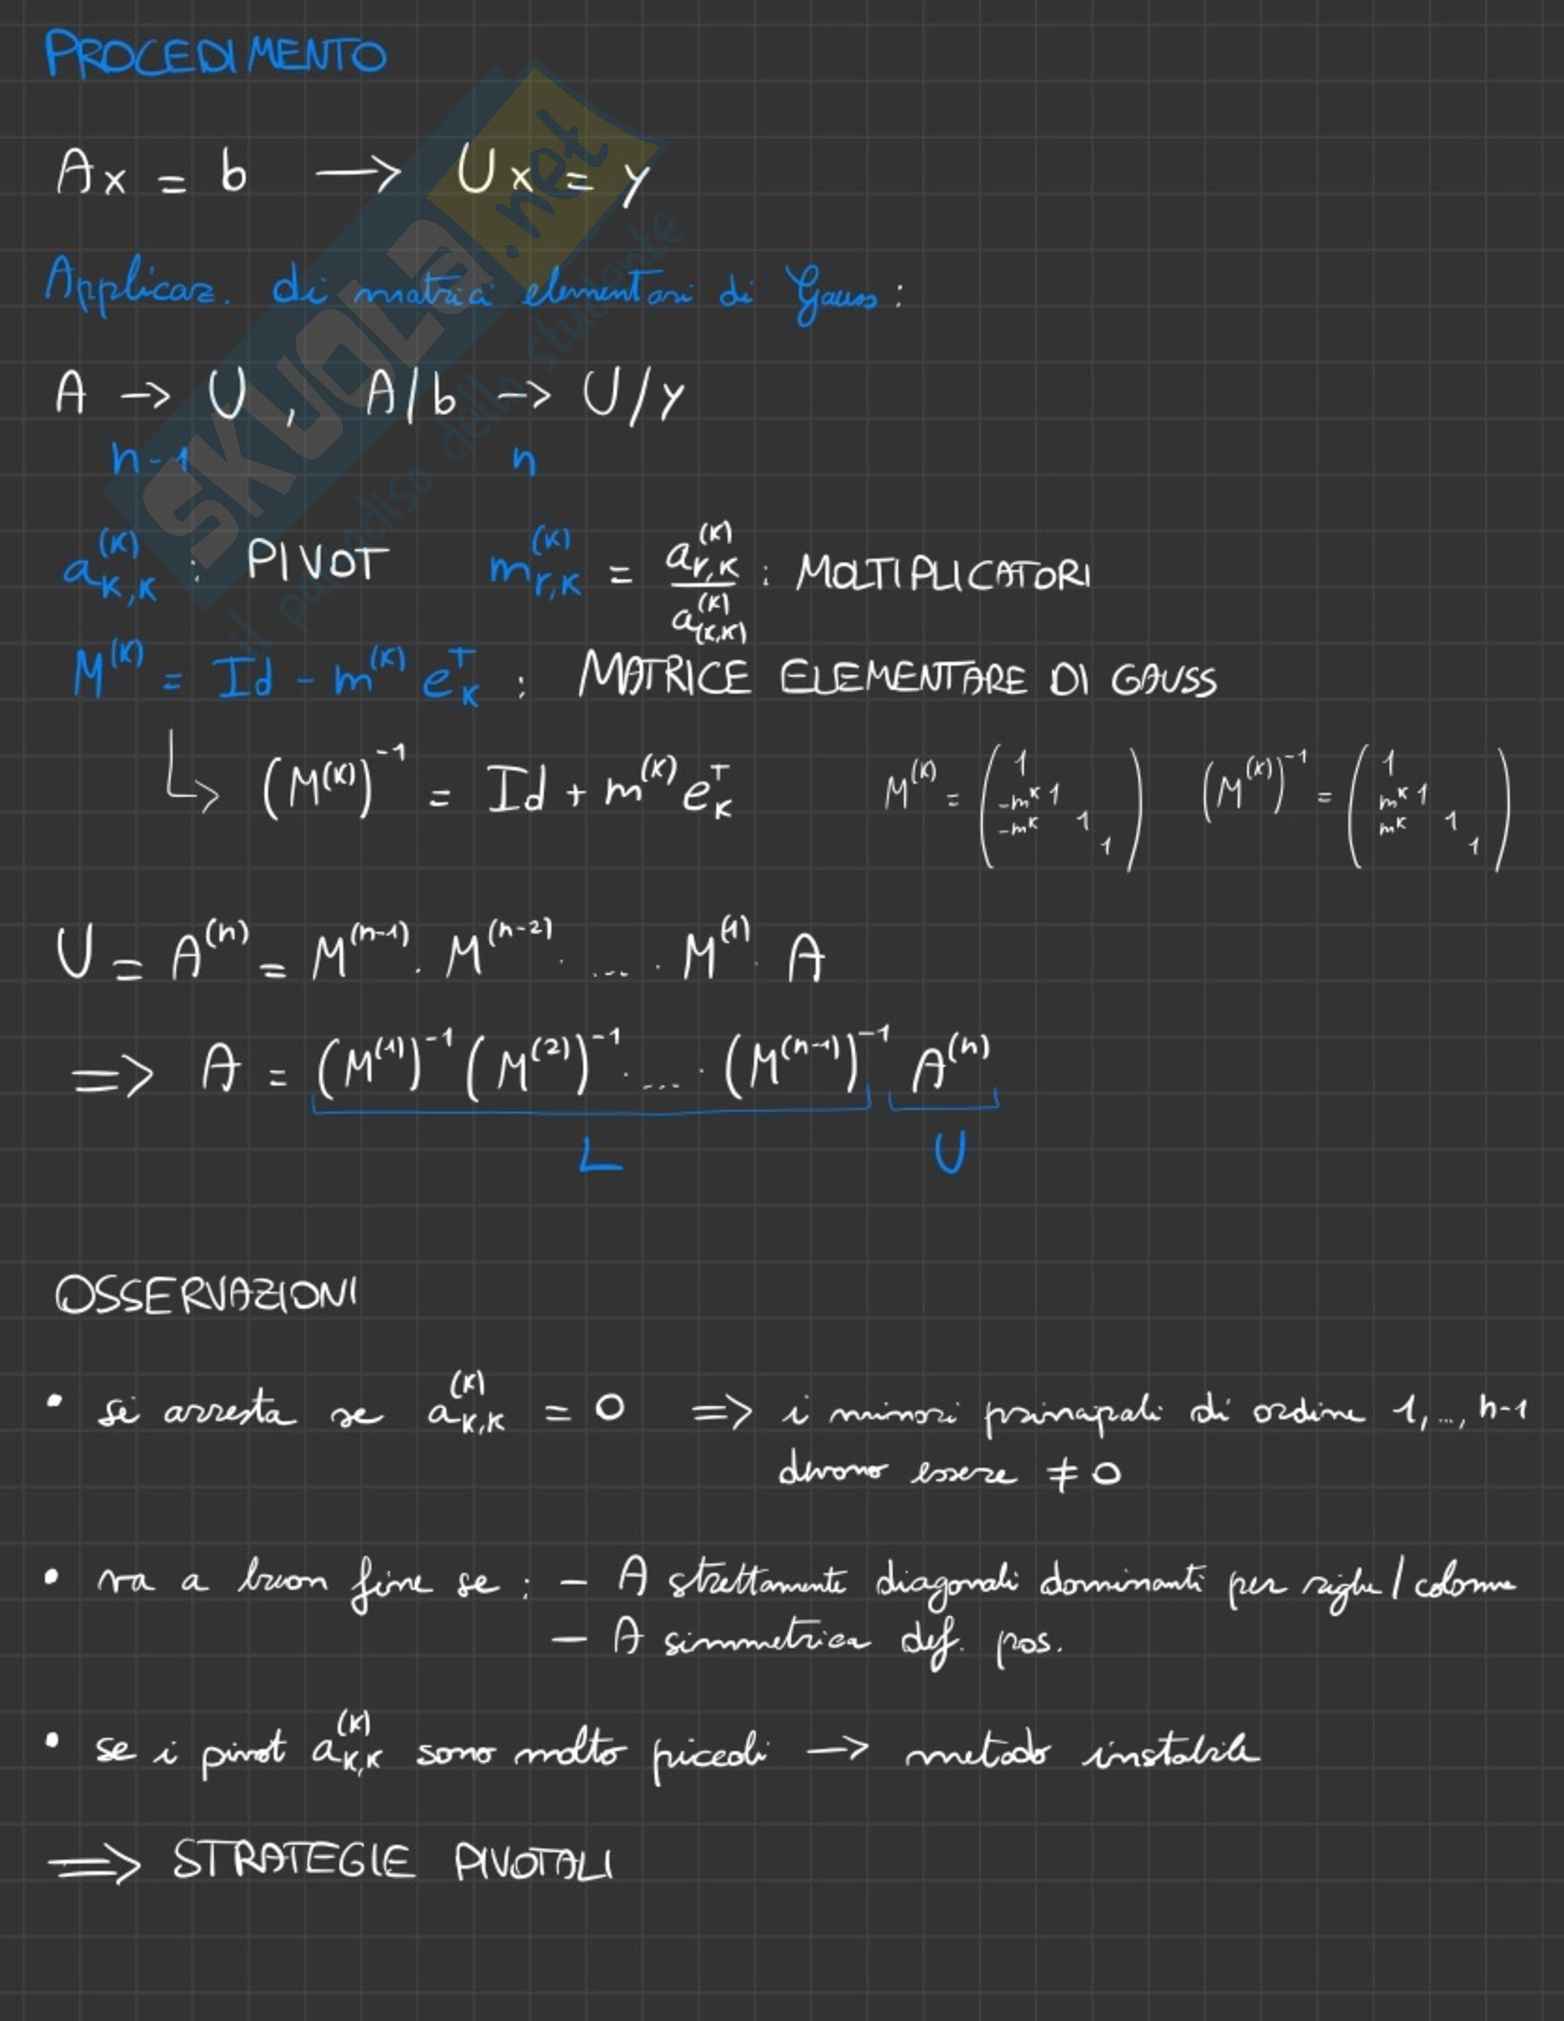 PROCEDIMENTO
Ax = b → Ux = y
Applicaz. di matrici elementari di Gauss :
A → U , A/b → U/y
n-1 n
a_{K,K}^{(K)} : PIVOT m_{r,K}^{(K)} = a_{r,K}^{(K)} / a_{(K,K)}^{(K)} : MOLTIPLICATORI
M^{(K)} = Id - m^{(K)} e_K^T : MATRICE ELEMENTARE DI GAUSS
↳ (M^{(K)})^{-1} = Id + m^{(K)} e_K^T M^{(K)} = ( 1 ; -m^K 1 ; -m^K 1 ; 1 ) (M^{(K)})^{-1} = ( 1 ; m^K 1 ; m^K 1 ; 1 )
U = A^{(n)} = M^{(n-1)} · M^{(n-2)} · ... · M^{(1)} · A
=> A = (M^{(1)})^{-1} (M^{(2)})^{-1} · ... · (M^{(n-1)})^{-1} A^{(n)}
L U
OSSERVAZIONI
• si arresta se a_{K,K}^{(K)} = 0 => i minori principali di ordine 1, ..., n-1
devono essere ≠ 0
• va a buon fine se : - A strettamente diagonali dominanti per righe / colonne
- A simmetrica def. pos.
• se i pivot a_{K,K}^{(K)} sono molto piccoli → metodo instabile
=> STRATEGIE PIVOTALI
SKUOLa.net
il paradiso dello studente